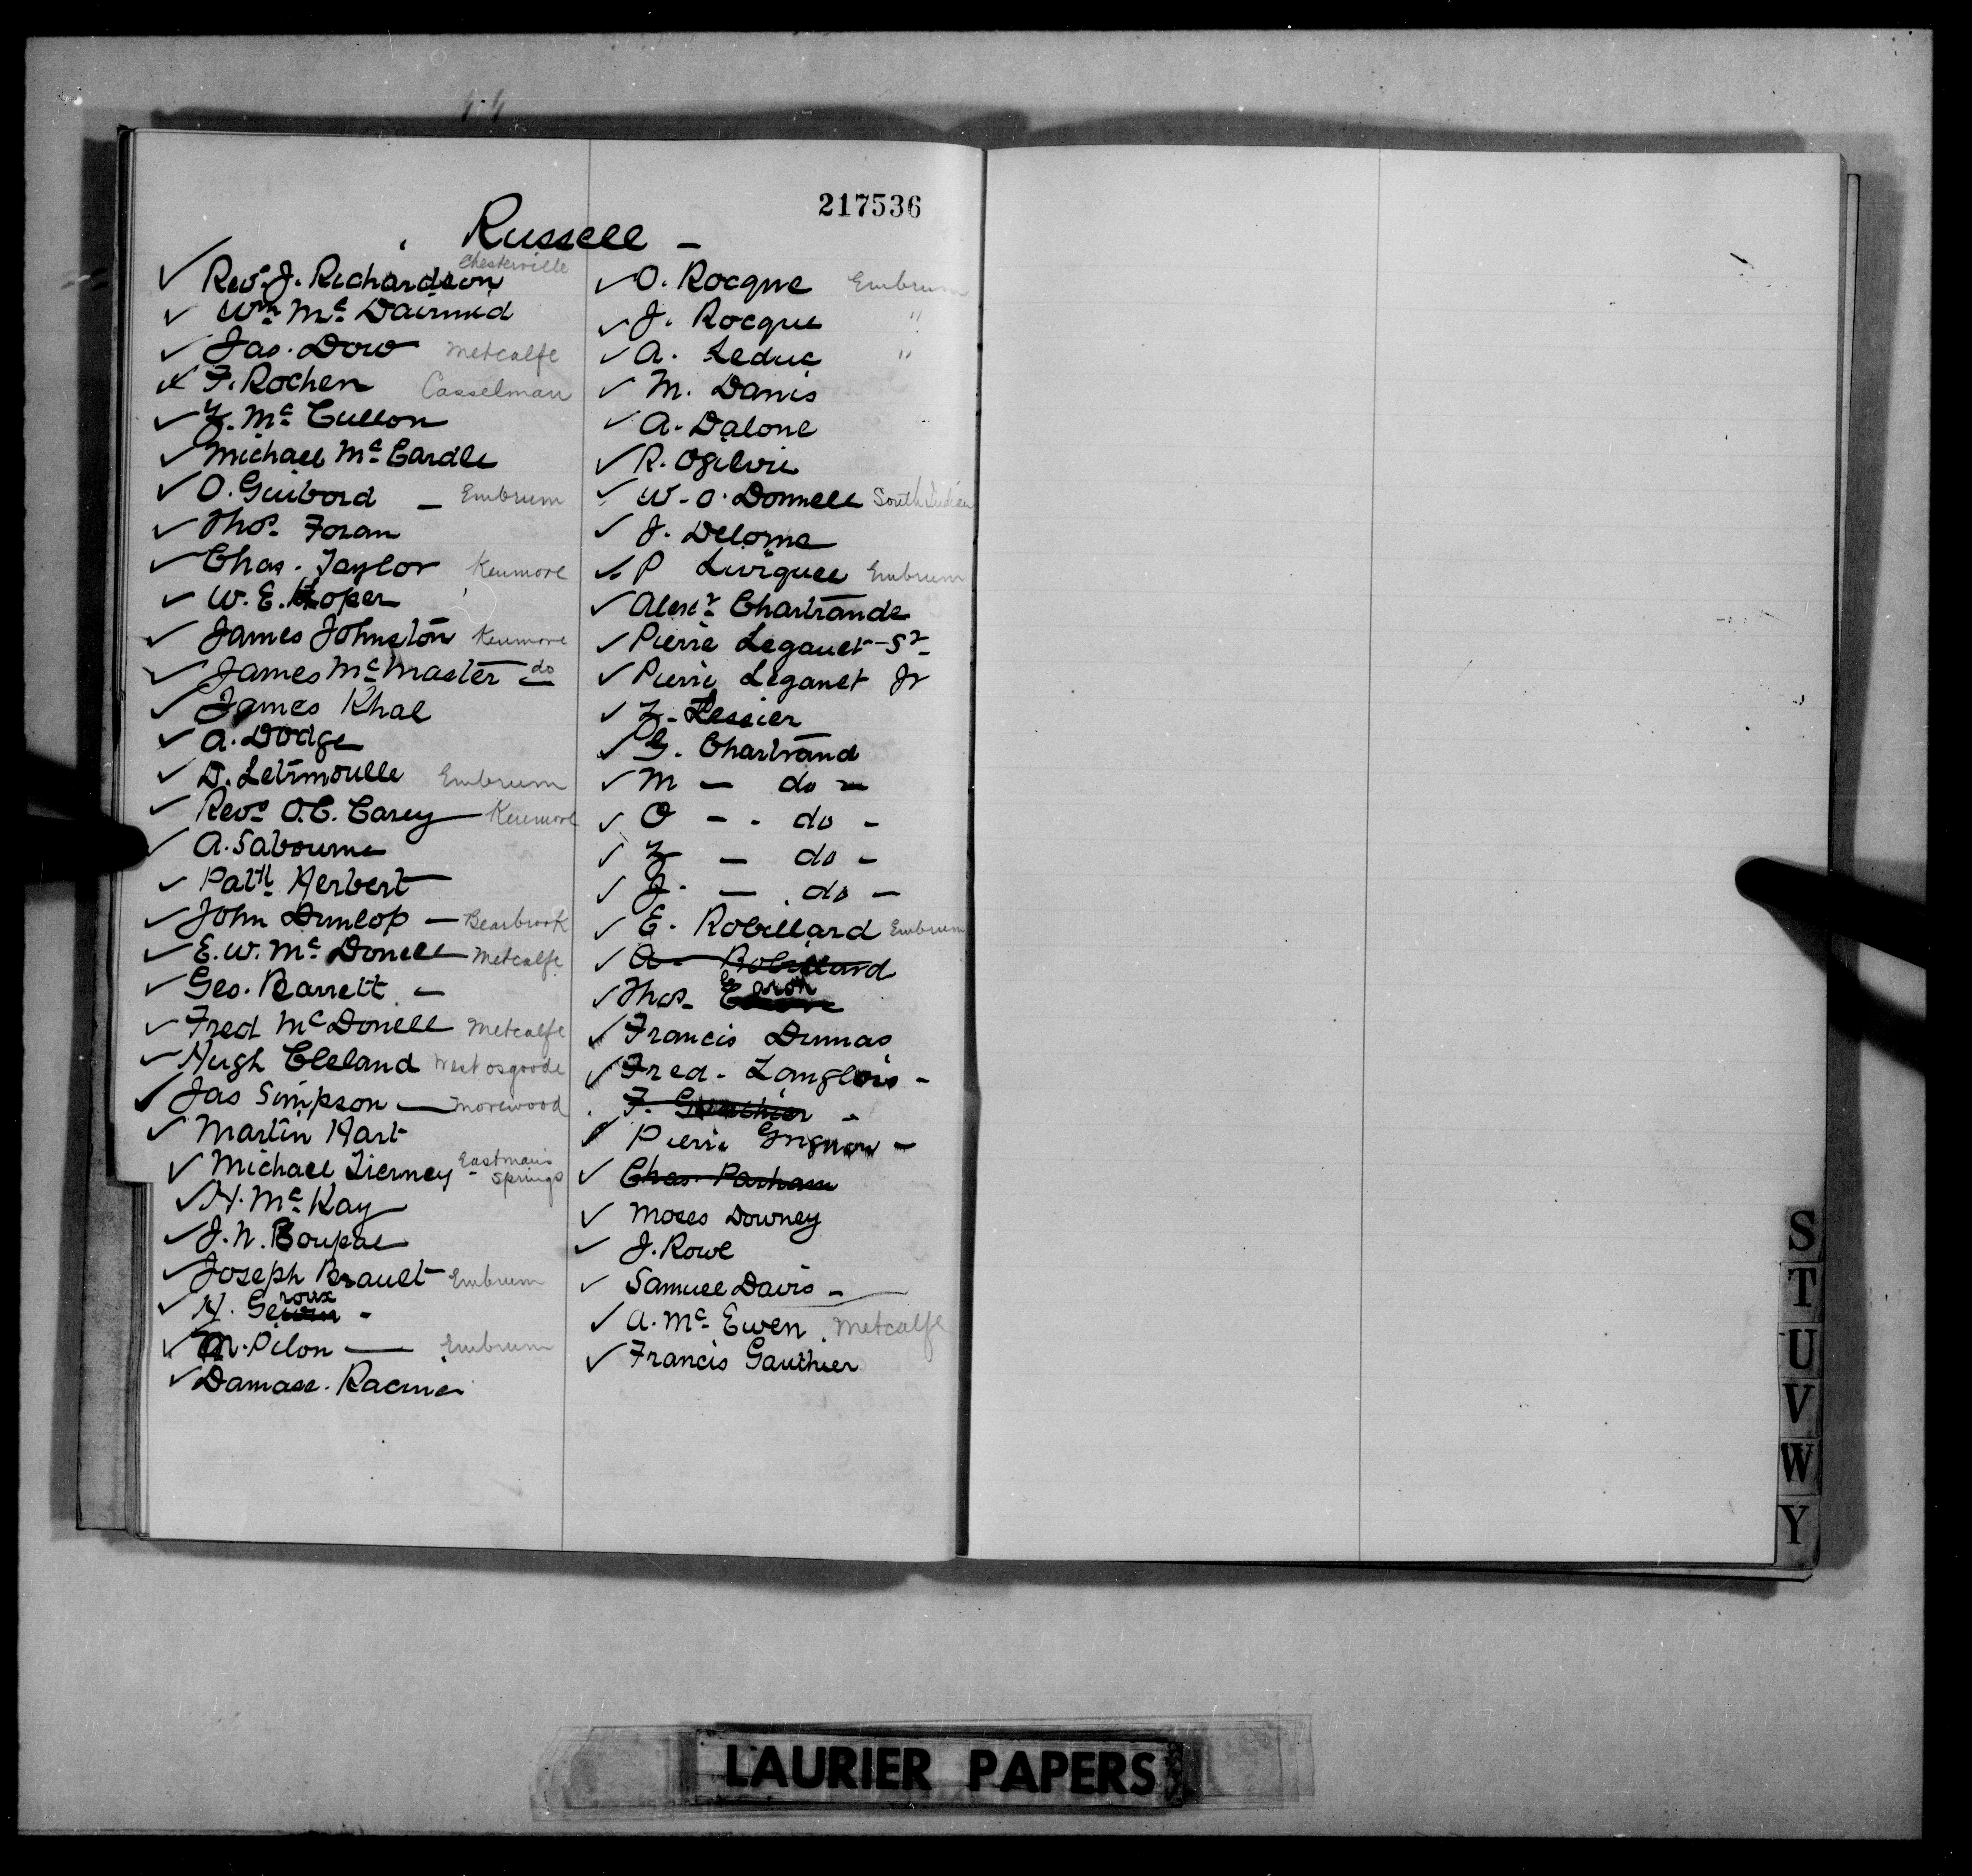 217536
Russell -
✓ Revd J. Richardson Chesterville
✓ Wm Mc Dairmid
✓ Jas. Dow Metcalfe
✓ F. Rochen Casselman
✓ Z. Mc Cullon
✓ Michael Mc Cardle
✓ O. Guibord - Embrum
✓ Thos. Foran
✓ Chas. Taylor Kenmore
✓ W. E. Loper
✓ James Johnston Kenmore
✓ James Mc Master - do
✓ James Khal
✓ A. Dodge
✓ D. Letrmoulle Embrum
✓ Revd O. C. Carey - Kenmore
✓ A. Sabourne
✓ Patk Herbert
✓ John Dunlop - Bearbrook
✓ E. W. Mc Donell - Metcalfe
✓ Geo. Barrett -
✓ Fred Mc Donell Metcalfe
✓ Hugh Cleland West osgoode
✓ Jas Simpson - Morewood
✓ Martin Hart
✓ Michael Tierney - Eastman's Springs
✓ H. Mc Kay
✓ J. N. Boupal
✓ Joseph Brault Embrum
✓ H. Geroux -
✓ M. Pilon - Embrum
✓ Damase. Racine
✓ O. Rocque Embrum
✓ J. Rocque "
✓ A. Leduc "
✓ M. Danis
✓ A. Dalone
✓ R. Ogilvie
✓ W. O. Donnell South Indian
✓ J. Delorme
✓ P Liviguee Embrum
✓ Alexr Chartrande
✓ Pierre Leganet - Sr
✓ Pierre Leganet Jr
✓ Z. Lessier
✓ G. Chartrand
✓ M - do -
✓ O - - do -
✓ Z - do -
✓ J. - do -
✓ E. Robillard Embrum
✓ A - Robillard
✓ Thos. Caron
✓ Francis Dumas
✓ Fred. Langlois -
F. Gauthier -
✓ Pierre Grignon -
✓ Chas. Parham
✓ Moses Downey
✓ J. Rowe
✓ Samuel Davis -
✓ A. Mc Ewen. Metcalfe
✓ Francis Gauthier
S
T
U
V
W
Y
LAURIER PAPERS